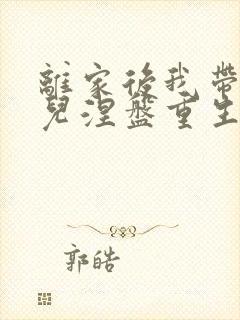 離家後我帶
兒涅盤重生
郭皓